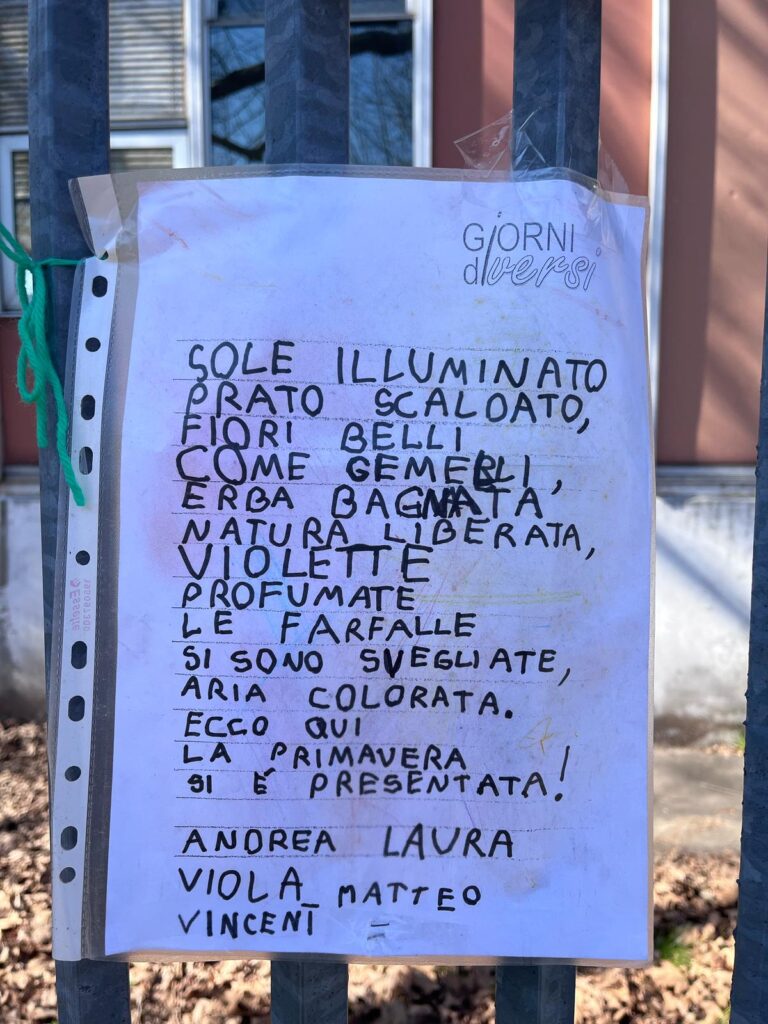 GiORNI
diversi
SOLE ILLUMINATO
PRATO SCALDATO,
FIORI BELLI
COME GEMELLI,
ERBA BAGNATA
NATURA LIBERATA,
VIOLETTE
PROFUMATE
LE FARFALLE
SI SONO SVEGLIATE,
ARIA COLORATA.
ECCO QUI
LA PRIMAVERA
SI È PRESENTATA!
ANDREA LAURA
VIOLA MATTEO
VINCENT
Esselte